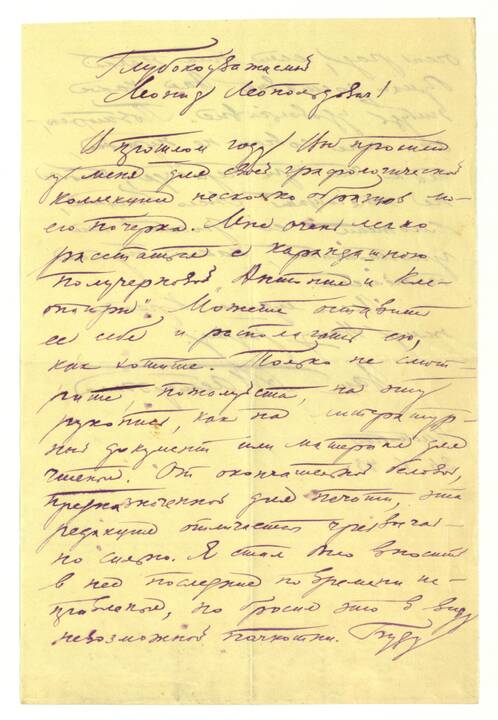 Глубокоуважаемый
Леонид Леопольдович!
В прошлом году Вы просили
у меня для своей графологической
коллекции несколько образцов мо-
его почерка. Мне очень легко
расстаться с карандашною
получерновой „Антония и Клео-
патры". Можете оставить
ее себе и располагать ею,
как хотите. Только не смот-
рите, пожалуйста, на эту
рукопись, как на литератур-
ный документ или материал для
чтения. От окончательной беловой,
предназначенной для печати, эта
редакция отличается чрезвычай-
но сильно. Я стал было вносить
в нее последние по времени ис-
правления, но бросил это в виду
невозможной пачкотни. Буду